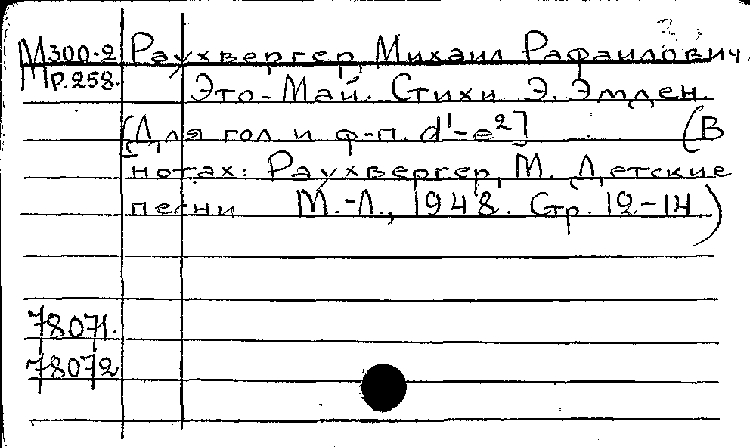 М300-2 Раухвергер, Михаил Рафаилович.
М Р.258. Это - Май. Стихи Э. Эмден.
[Для гол и ф-п. d¹-e²] (В
нотах: Раухвергер, М. Детские
песни М.-Л., 1948. Стр. 12-14)
78071.
78072